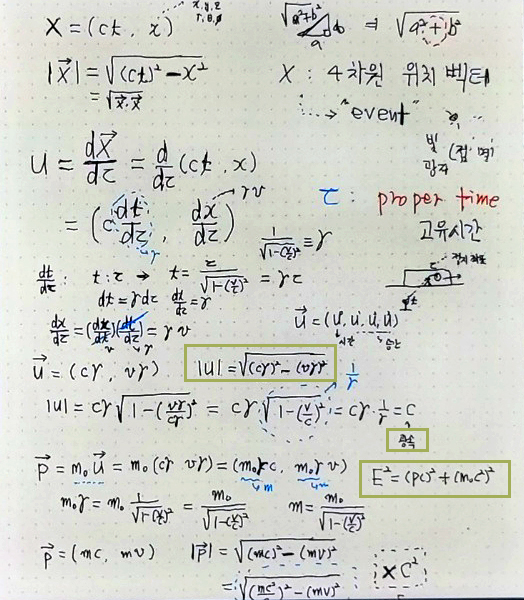 x, y, z
r, θ, φ
X = (ct, x)
√a²+b² a b ⇒ √a²+b²
|X⃗| = √(ct)²-x²
= √X⃗·X⃗
X : 4차원 위치 벡터
→ "event"
빛 (점·멸)
광자
U = dX⃗/dτ = d/dτ (ct, x)
τ : proper time
고유시간
= (c dt/dτ, dx/dτ) → γv
γ
1/√1-(v/c)² ≡ γ
dt/dτ : t : τ → t = τ/√1-(v/c)² = γτ
dt = γdτ dt/dτ = γ
dx/dτ = (dx/dt)(dt/dτ) = γv
v γ
u⃗ = (u⁰, u¹, u², u³)
시간 공간
u⃗ = (cγ, vγ) |u| = √(cγ)²-(vγ)²
1/γ
|u| = cγ√1-(vγ/cγ)² = cγ√1-(v/c)² = cγ·1/γ = c
광속
p⃗ = m₀u⃗ = m₀(cγ vγ) = (m₀γc, m₀γv)
m m
E² = (pc)²+(m₀c²)²
m₀γ = m₀ 1/√1-(v/c)² = m₀/√1-(v/c)² m = m₀/√1-(v/c)²
p⃗ = (mc, mv) |p⃗| = √(mc)²-(mv)²
×c²
= √(mc²/c)²-(mv)²